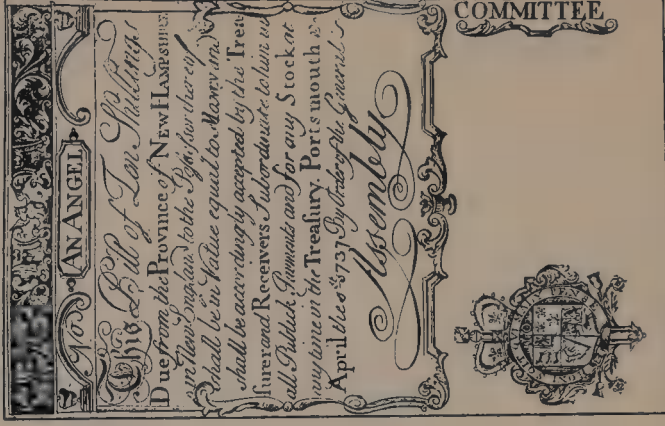 No AN ANGEL
This Bill of Ten Shillings
Due from the Province of NEW HAMPSHIRE
in New England to the Possessor thereof
shall be in Value equal to Money and
shall be accordingly accepted by the Trea
surer and Receivers Subordinate to him in
all Publick Payments and for any Stock at
any time in the Treasury. Portsmouth
April the 1737 By Order of the General
Assembly
COMMITTEE